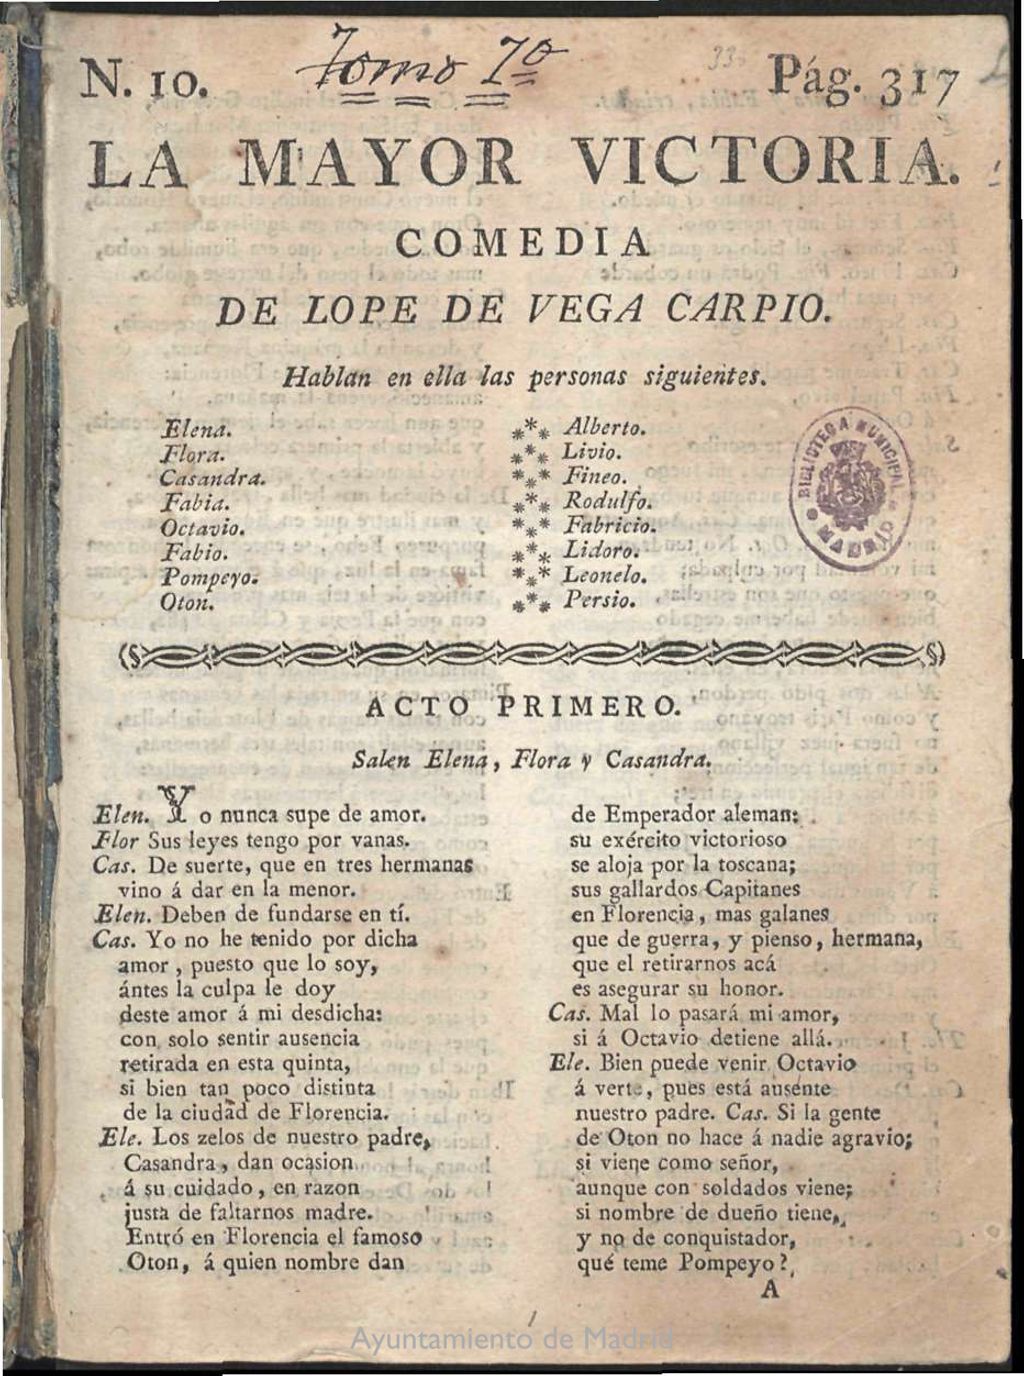 N. 10. Tomo 7º Pág. 317
LA MAYOR VICTORIA.
COMEDIA
DE LOPE DE VEGA CARPIO.
Hablan en ella las personas siguientes.
Elena.
Flora.
Casandra.
Fabia.
Octavio.
Fabio.
Pompeyo.
Oton.
Alberto.
Livio.
Fineo.
Rodulfo.
Fabricio.
Lidoro.
Leonelo.
Persio.
BIBLIOTECA MUNICIPAL
MADRID
ACTO PRIMERO.
Salen Elena, Flora y Casandra.
Elen. Yo nunca supe de amor.
Flor Sus leyes tengo por vanas.
Cas. De suerte, que en tres hermanas
vino á dar en la menor.
Elen. Deben de fundarse en tí.
Cas. Yo no he tenido por dicha
amor, puesto que lo soy,
ántes la culpa le doy
deste amor á mi desdicha:
con solo sentir ausencia
retirada en esta quinta,
si bien tan poco distinta
de la ciudad de Florencia.
Ele. Los zelos de nuestro padre,
Casandra, dan ocasion
á su cuidado, en razon
justa de faltarnos madre.
Entró en Florencia el famoso
Oton, á quien nombre dan
de Emperador aleman:
su exército victorioso
se aloja por la toscana;
sus gallardos Capitanes
en Florencia, mas galanes
que de guerra, y pienso, hermana,
que el retirarnos acá
es asegurar su honor.
Cas. Mal lo pasará mi amor,
si á Octavio detiene allá.
Ele. Bien puede venir Octavio
á verte, pues está ausente
nuestro padre. Cas. Si la gente
de Oton no hace á nadie agravio;
si viene como señor,
aunque con soldados viene;
si nombre de dueño tiene,
y no de conquistador,
qué teme Pompeyo?
A
Ayuntamiento de Madrid